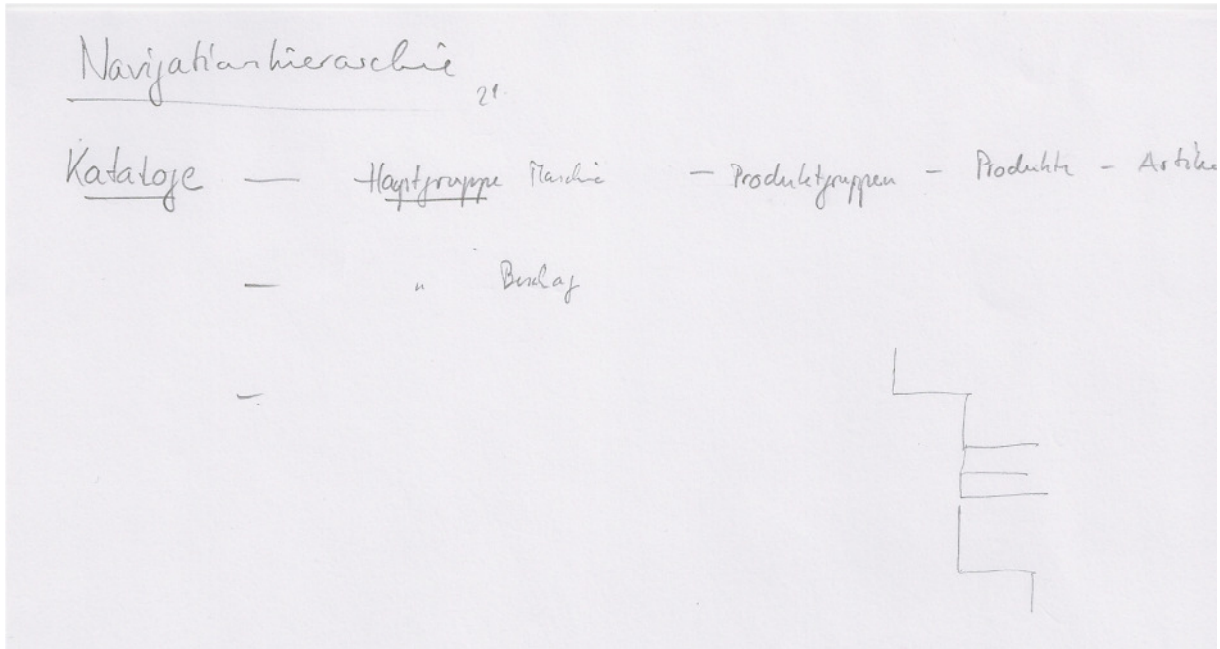 Navigationshierarchie
21.
Kataloge — Hauptgruppe Maschie — Produktgruppen – Produkte – Artike
— " Beschlag
—